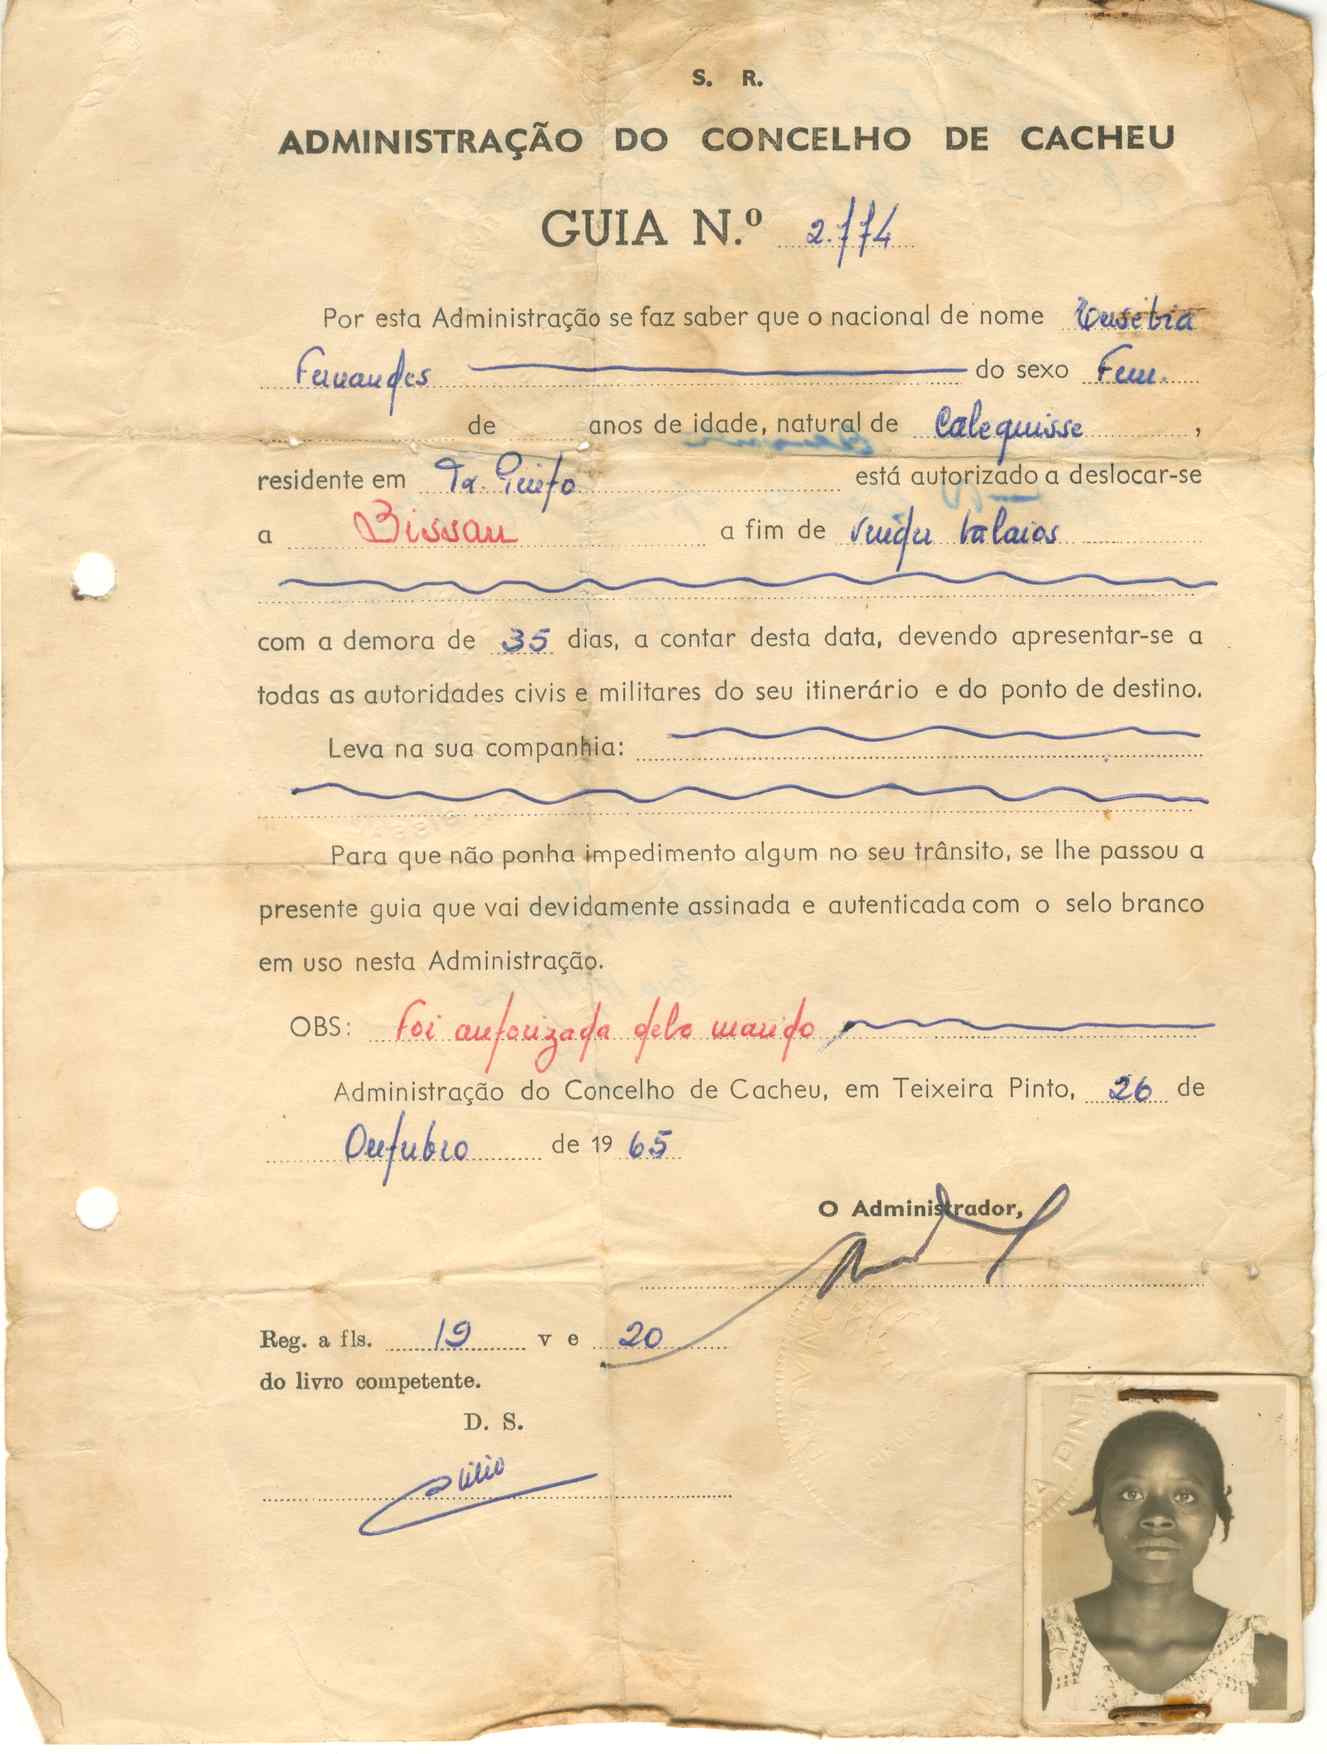 S. R.
ADMINISTRAÇÃO DO CONCELHO DE CACHEU
GUIA N.º 2.774
Por esta Administração se faz saber que o nacional de nome Eusébia
Fernandes do sexo Fem.
de anos de idade, natural de Calequisse,
residente em Tx. Pinto está autorizado a deslocar-se
a Bissau a fim de vender balaios
com a demora de 35 dias, a contar desta data, devendo apresentar-se a
todas as autoridades civis e militares do seu itinerário e do ponto de destino.
Leva na sua companhia:
Para que não ponha impedimento algum no seu trânsito, se lhe passou a
presente guia que vai devidamente assinada e autenticada com o selo branco
em uso nesta Administração.
OBS: Foi autorizada pelo marido
Administração do Concelho de Cacheu, em Teixeira Pinto, 26 de
Outubro de 1965
O Administrador,
Reg. a fls. 19 v e 20
do livro competente.
D. S.